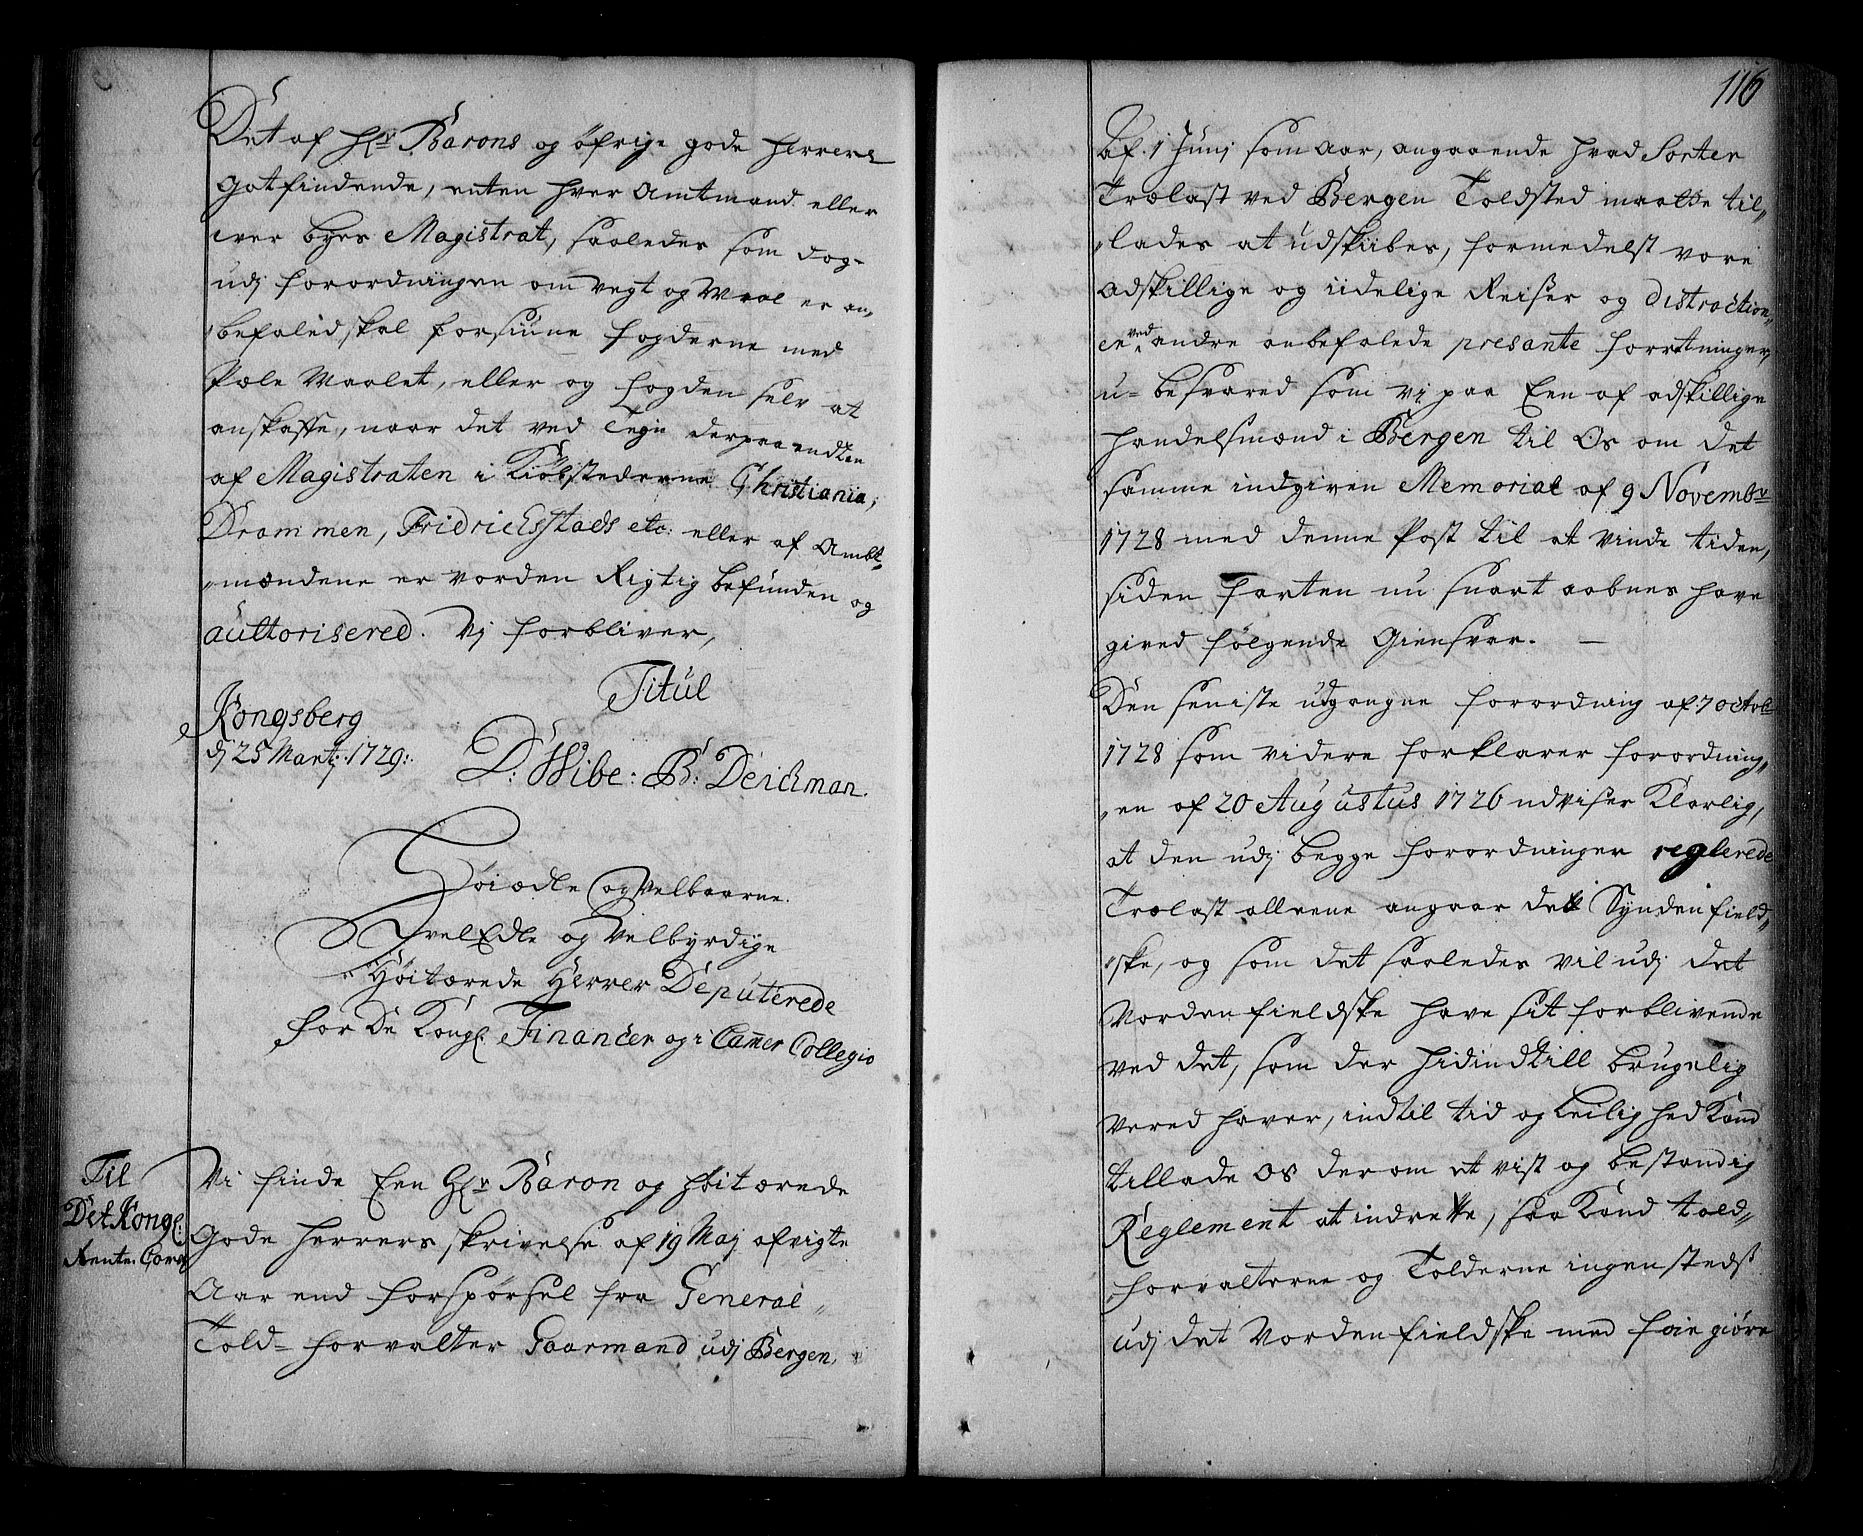 Det af Hr Barons og öfrige gode Herrers
gotfindende, enten hver Amtmand eller
hver byes Magistrat, saaledes som dog
udj forordningen om vegt og Maal er an-
befaled, skal forsiüne fogderne med
Pæle Maalet, eller og fogden selv at
anskaffe, naar det ved Tegn derpaa endten
af Magistraten i Kiöbstederne Christiania,
Drammen, Fridrichsstads etc: eller af Ambt-
mændene er vorden Rigtig befunden og
aüttorisered. Vj forbliver,
Titül
Kongsberg
dj 25 Martj: 1729:
D: Wibe: B: Deichman.
Höiædle og Velbaarne.
Hvel Edle og Velbyrdige
Höitærede Herrer Deputerede
for De Kongl. Financer og i Camer Collegio
Til
Det Kongl:
Rente: Cam
Vi finde Een Hr Baron og höitærede
Gode Herrers skrivelse af 19 Maj afvigte
Aar end forspörsel fra General-
Told= forvalter Gaarmand udj Bergen,
116
Af 1 Junj som Aar, angaaende hvad Sorter
Trælast ved Bergen Toldsted maatte til-
lades at udskibes, formedelst vore
adskillige og iidelige Reiser og distraction-
er ved andre anbefalede presante forretninger,
u= besvared som vj paa Een af adskillige
handelsmænd i Bergen til Os om det
samme indgiven Memorial af 9 Novembr
1728 med denne Post til at vinde tiden,
siden farten nu snart aabnes have
gived følgende Giensvar. —
Den seniste udgangne forordning af 7 octobr
1728 som videre forklarer forordning-
en af 20 Augustus 1726 udviser Klarlig,
at den udj begge forordninger reglerede
Trælast alleene angaar det Synden field-
ske, og som det saaledes vil udj det
Nordenfieldske have sit forblivende
ved det, som der hidindtill brugelig
vered haver, indtil tid og Leilighed Kand
tillade Os derom et vist og bestandig
Reglement at indrette, saa Kand told-
forvalterne og Tolderne ingenstedst
udj det Nordenfieldske med foie giöre